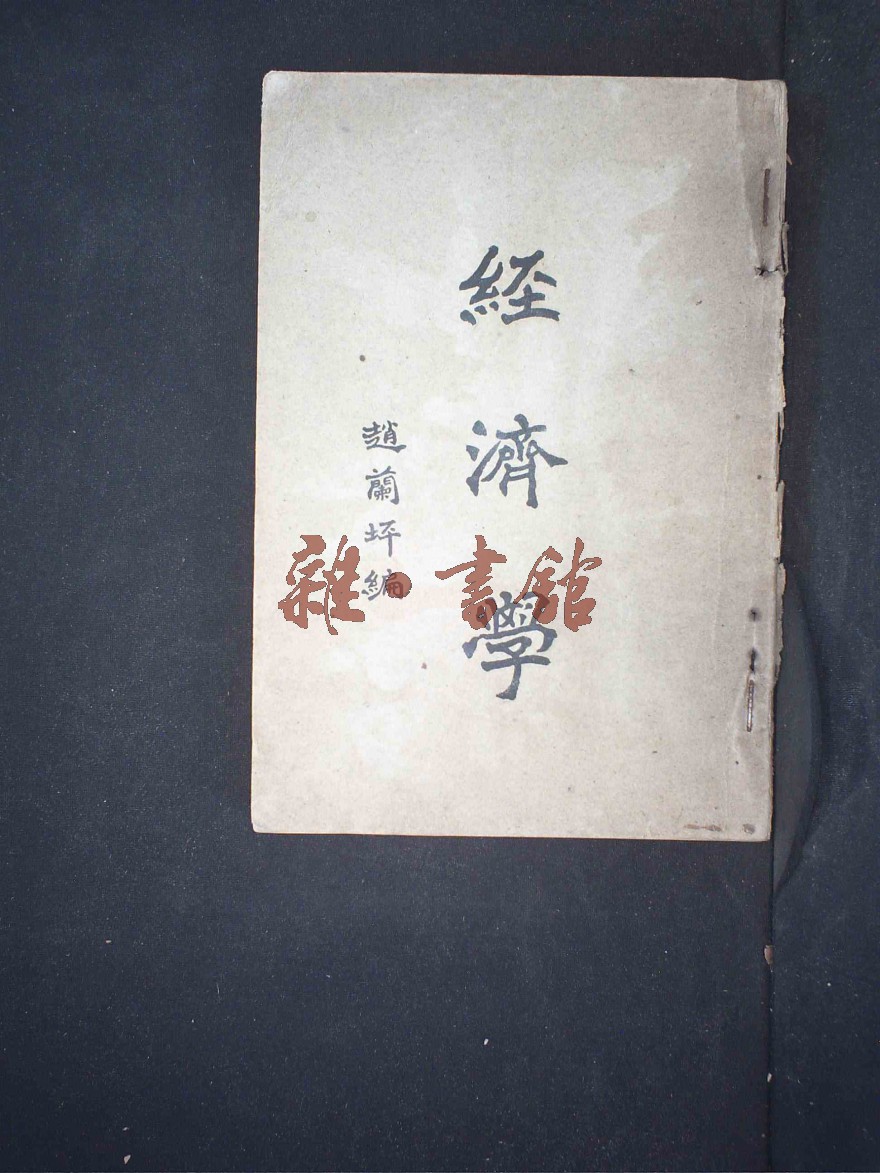 經濟學
趙蘭坪編
雜·書館